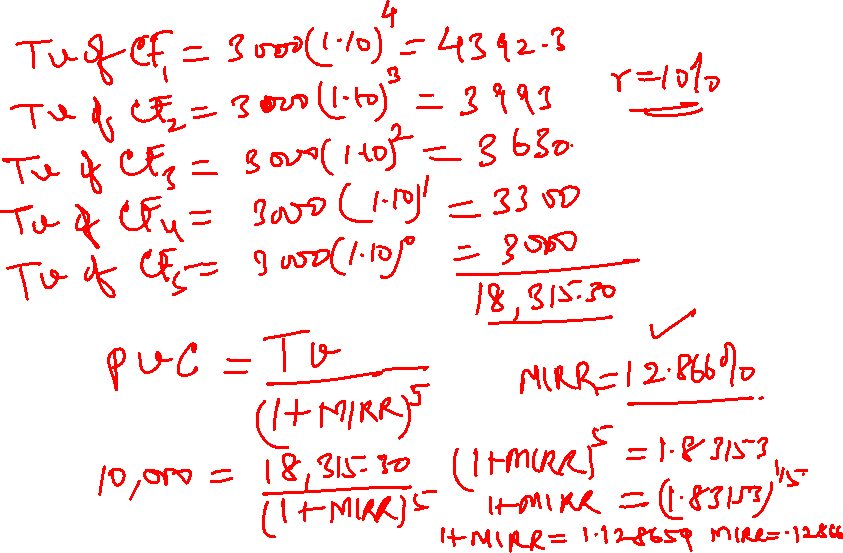 TV of CF₁ = 3000(1.10)⁴ = 4392.3
TV of CF₂ = 3000(1.10)³ = 3993
r = 10%
TV of CF₃ = 3000(1.10)² = 3630.
TV of CF₄ = 3000(1.10)¹ = 3300
TV of CF₅ = 3000(1.10)⁰ = 3000
18,315.30
PVC = TV / (1+MIRR)⁵
MIRR = 12.866%
10,000 = 18,315.30 / (1+MIRR)⁵
(1+MIRR)⁵ = 1.83153
1+MIRR = (1.83153)^1/5
1+MIRR = 1.128659 MIRR = .12866